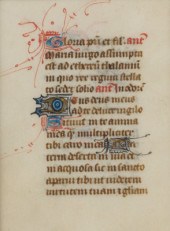 Gloria pri et fil. ant
Maria virgo assumpta
est ad ethereum thalamum
in quo rex regum stella
to sedet solio ant In odore.
Deus deus meus
ad te de luce vigilo
Sitivit in te anima
mea q multipliciter
tibi caro mea
In terra deserta in via et
inaquosa sic in sancto
apparui tibi ut viderem
virtutem tuam et gliam